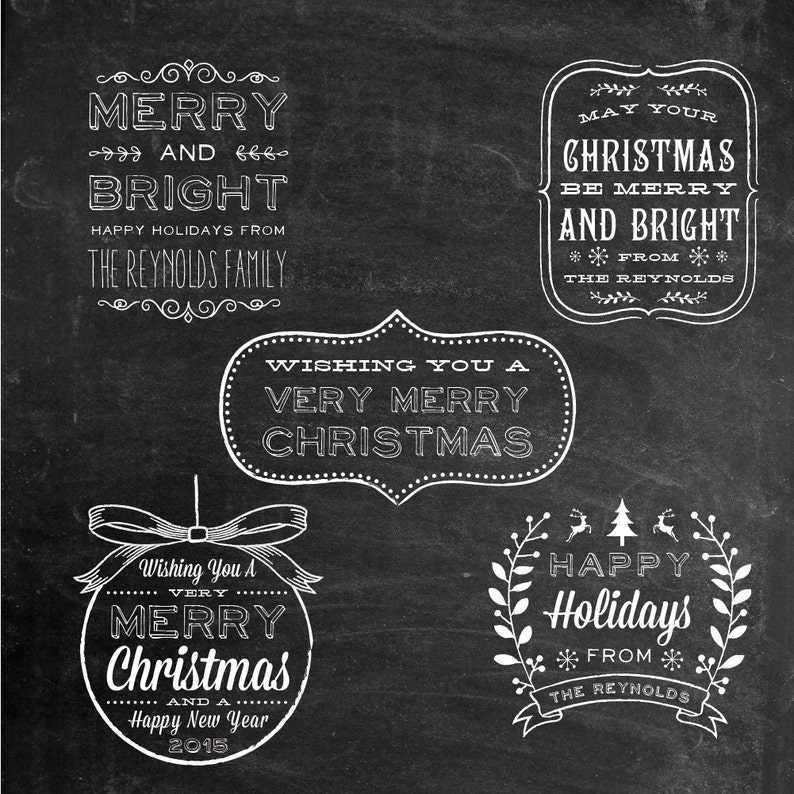 MERRY
AND
BRIGHT
HAPPY HOLIDAYS FROM
THE REYNOLDS FAMILY
MAY YOUR
CHRISTMAS
BE MERRY
AND BRIGHT
FROM
THE REYNOLDS
WISHING YOU A
VERY MERRY
CHRISTMAS
Wishing You A
VERY
MERRY
Christmas
AND A
Happy New Year
2015
HAPPY
Holidays
FROM
THE REYNOLDS